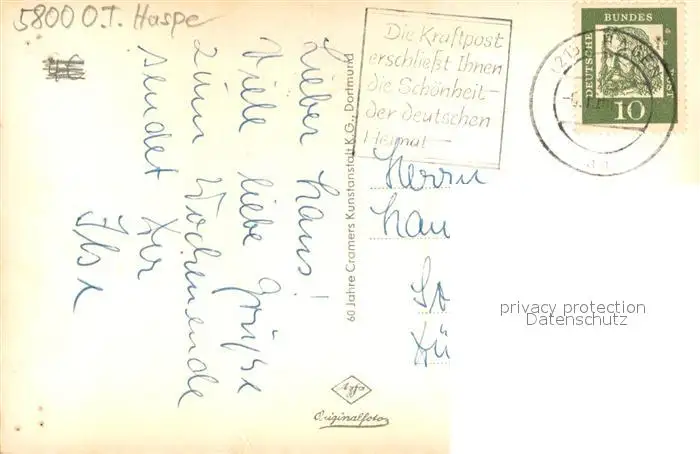 5800 O.T. Haspe
Lieber Hans!
Viele liebe Grüße
zum Wochenende
sendet Dir
Ilse
60 Jahre Cramers Kunstanstalt K.G., Dortmund
Die Kraftpost
erschließt Ihnen
die Schönheit
der deutschen
Heimat
DEUTSCHE BUNDESPOST
10
HAGEN
Herrn
privacy protection
Datenschutz
Agfa
Originalfoto